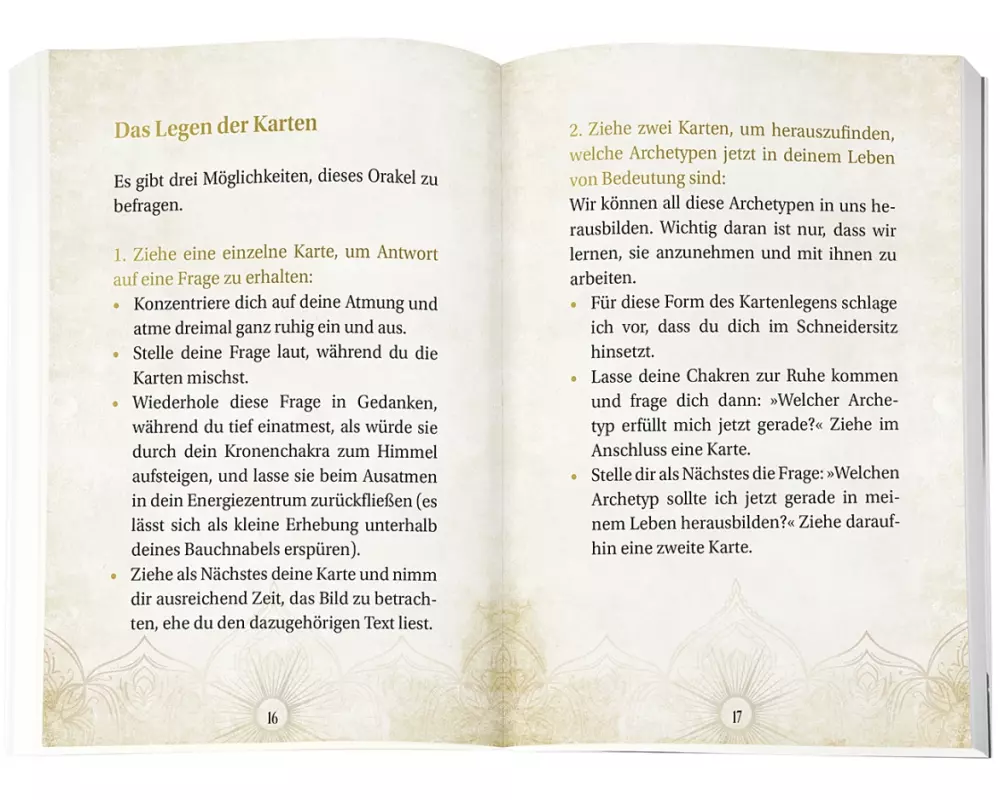 Das Legen der Karten
Es gibt drei Möglichkeiten, dieses Orakel zu
befragen.
1. Ziehe eine einzelne Karte, um Antwort
auf eine Frage zu erhalten:
• Konzentriere dich auf deine Atmung und
atme dreimal ganz ruhig ein und aus.
• Stelle deine Frage laut, während du die
Karten mischst.
• Wiederhole diese Frage in Gedanken,
während du tief einatmest, als würde sie
durch dein Kronenchakra zum Himmel
aufsteigen, und lasse sie beim Ausatmen
in dein Energiezentrum zurückfließen (es
lässt sich als kleine Erhebung unterhalb
deines Bauchnabels erspüren).
• Ziehe als Nächstes deine Karte und nimm
dir ausreichend Zeit, das Bild zu betrach-
ten, ehe du den dazugehörigen Text liest.
16
2. Ziehe zwei Karten, um herauszufinden,
welche Archetypen jetzt in deinem Leben
von Bedeutung sind:
Wir können all diese Archetypen in uns he-
rausbilden. Wichtig daran ist nur, dass wir
lernen, sie anzunehmen und mit ihnen zu
arbeiten.
• Für diese Form des Kartenlegens schlage
ich vor, dass du dich im Schneidersitz
hinsetzt.
• Lasse deine Chakren zur Ruhe kommen
und frage dich dann: »Welcher Arche-
typ erfüllt mich jetzt gerade?« Ziehe im
Anschluss eine Karte.
• Stelle dir als Nächstes die Frage: »Welchen
Archetyp sollte ich jetzt gerade in mei-
nem Leben herausbilden?« Ziehe darauf-
hin eine zweite Karte.
17